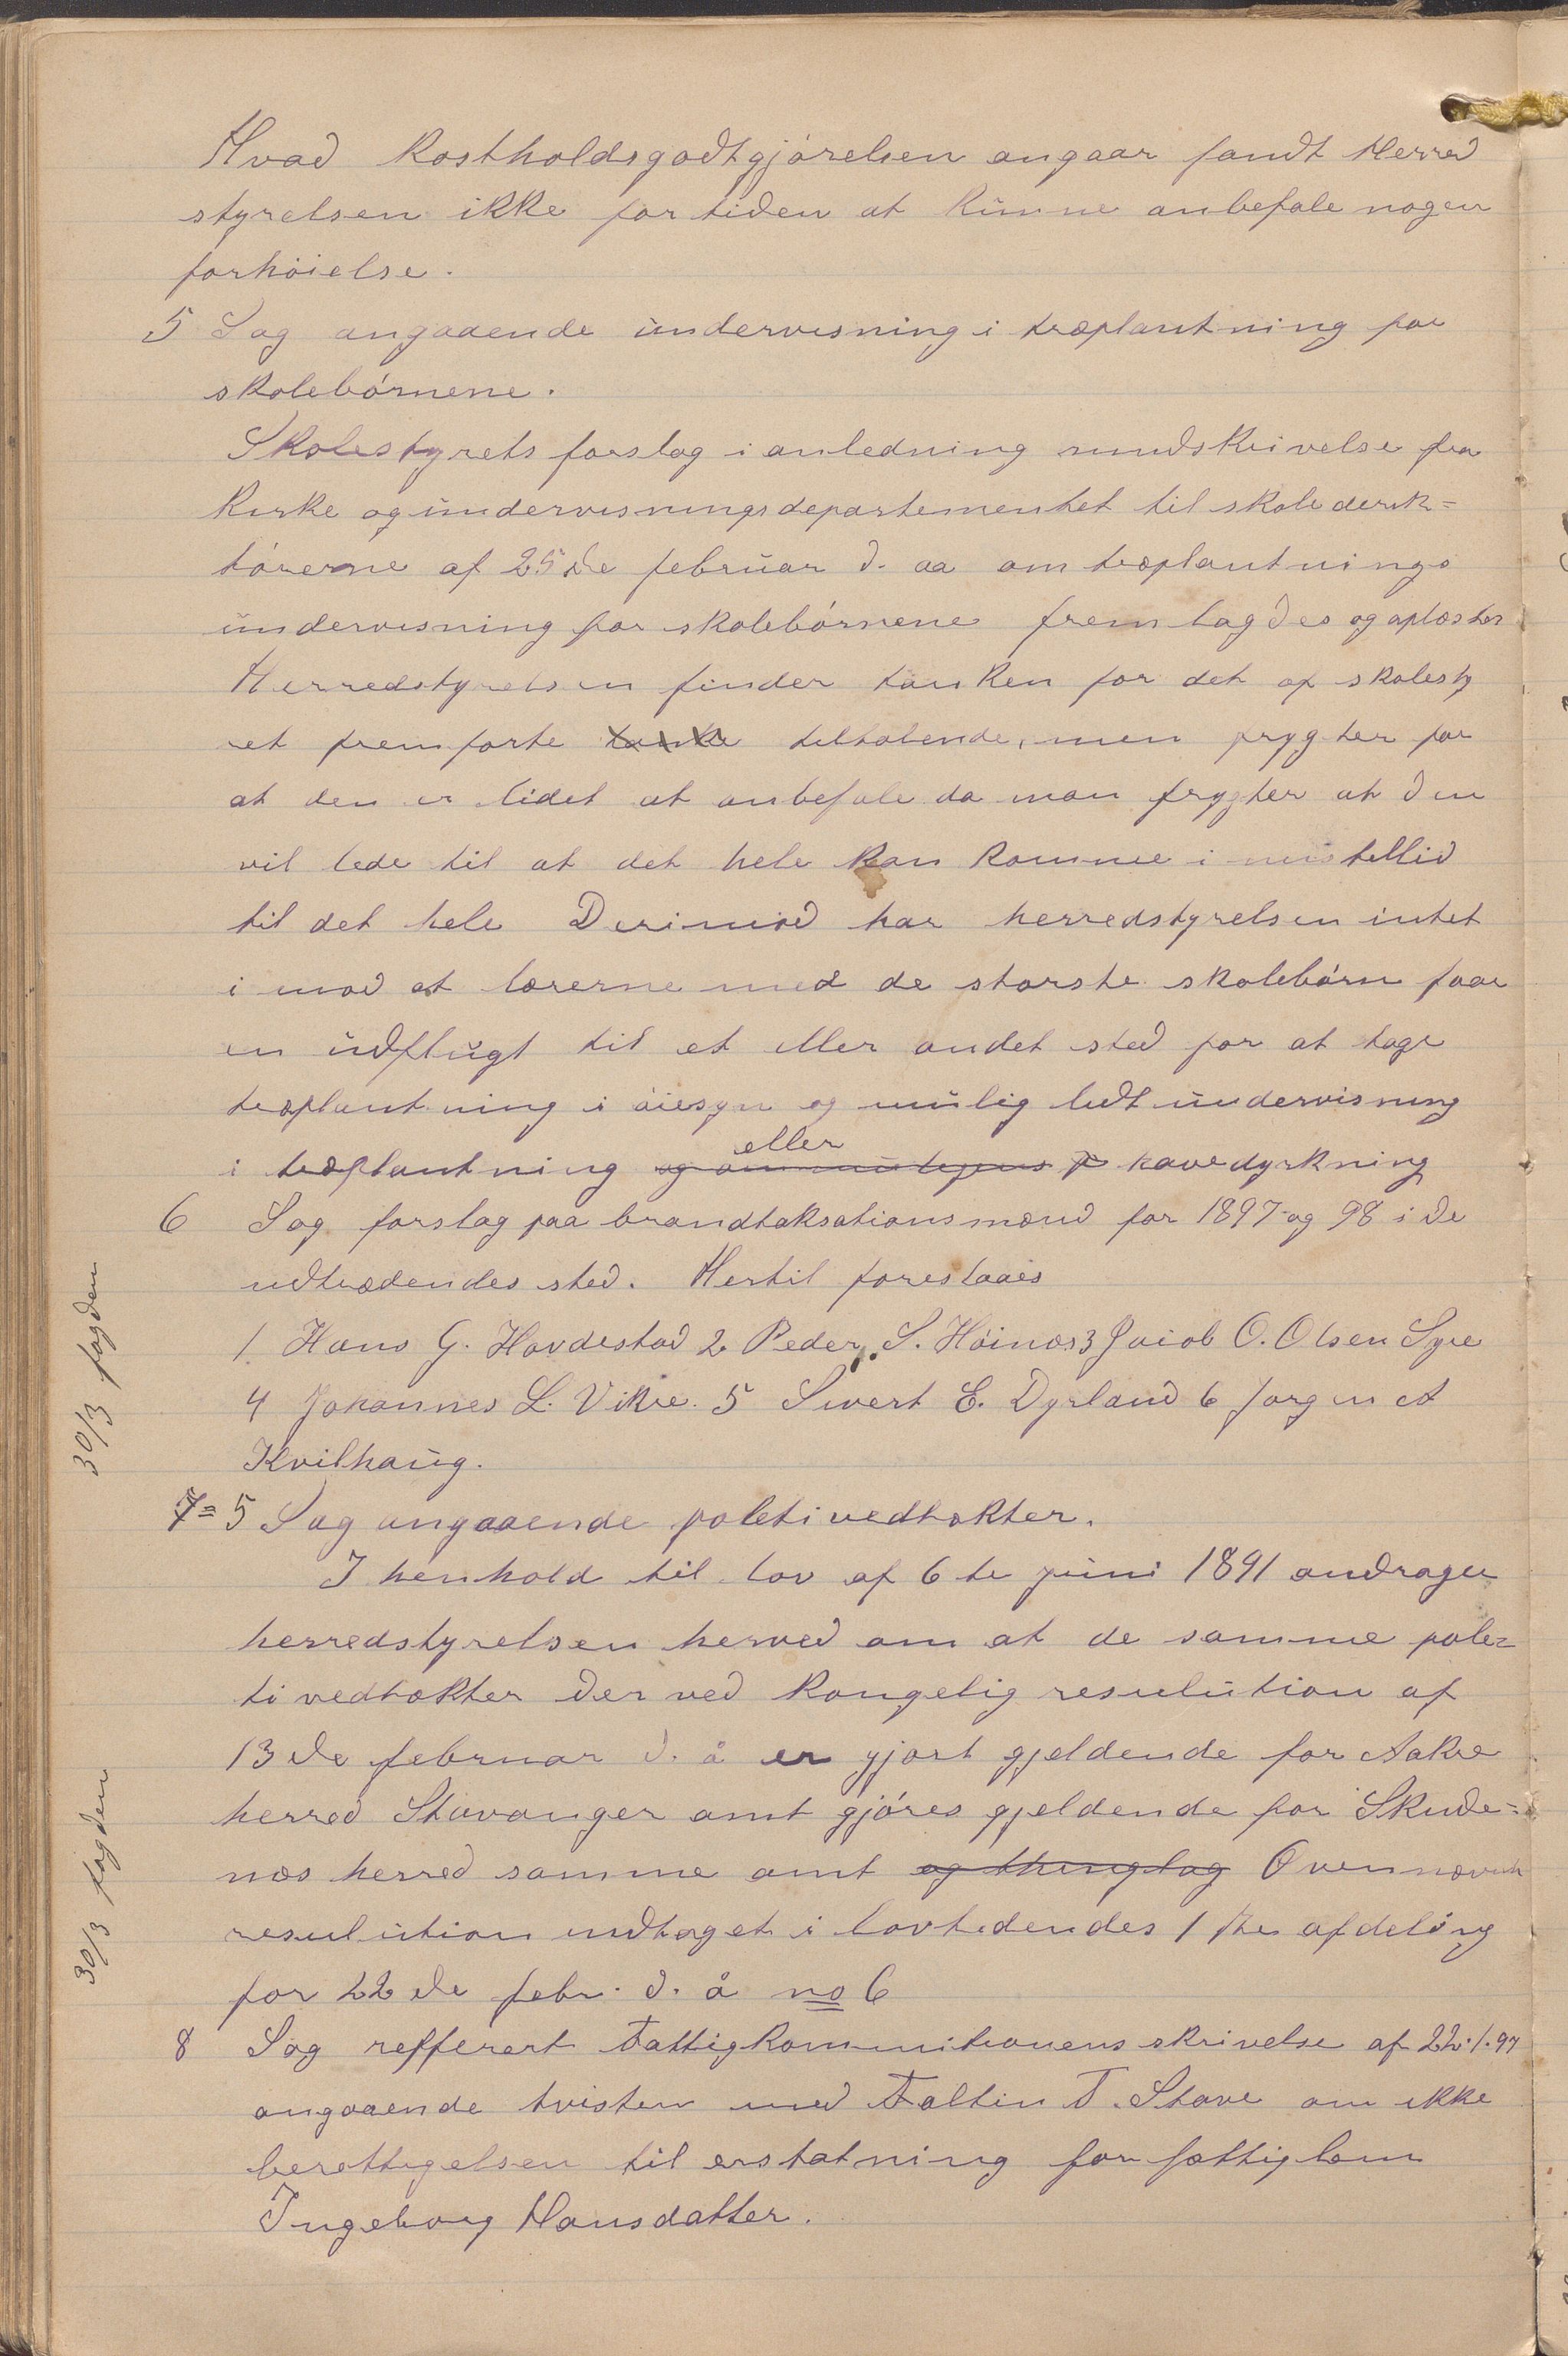 Hvad Kostholdsgodtgjørelsen angaar fandt Herred
styrelsen ikke for tiden at kunne anbefale nogen
forhøielse.
5 Sag angaaende undervisning i træplantning for
skolebørnene.
Skolestyrets forslag i anledning rundskrivelse fra
Kirke og undervisningsdepartementet til skolederik=
tørerne af 25de februar d. aa om træplantnings
undervisning for skolebørnene fremlagdes og oplæstes
Herredstyrelsen finder tanken for det af skolesty
ret fremførte tanke tiltalende, men frygter for
at den er lidet at anbefale da man frygter at den
vil lede til at det hele kan komme i mistellid
til det hele Derimod har herredstyrelsen intet
imod at lærerne med de største skolebørn faar
en udflugt til et eller andet sted for at tage
træplantning i øiesyn og mulig lidt undervisning
eller
i træplantning og havedyrkning
6 Sag forslag paa brandtaksationsmænd for 1897 og 98 i de
udtrædendes sted. Hertil foreslaaes
1. Hans G. Hovdestad 2 Peder S. Høinæs 3 Jaiob O. Olsen Syre
4 Johannes L. Vikre. 5 Sivert E. Dyrland 6 Jørgen A
Kvilhaug.
7= 5 Sag angaaende politivedtækter.
I henhold til lov af 6te juni 1891 andrager
herredstyrelsen herved om at de samme pole=
tivedtækter der ved kongelig resulution af
13de februar d. å er gjort gjeldende for Aakre
herred Stavanger amt gjøres gjeldende for Skude=
næs herred samme amt og thinglag Ovennævnte
resulution indtaget i lovtidendes 1ste afdeling
for 22de febr. d. å no 6
8 Sag refferert Fattigkommitionens skrivelse af 22.1.97
angaaende tvisten med Faltin T. Stave om ikke
berettigelsen til erstatning for fattiglem
Ingeborg Hansdatter.
30/3 fogden
30/3 fogden